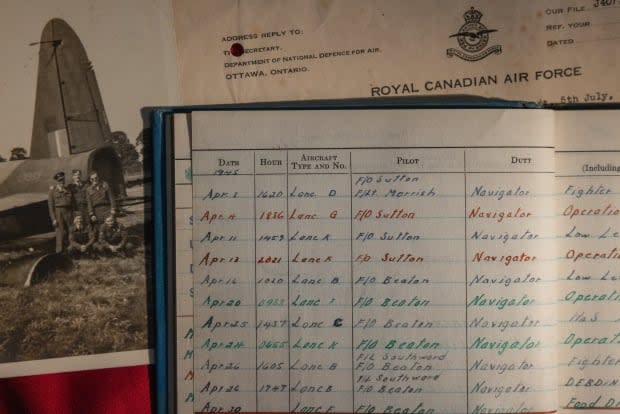 ADDRESS REPLY TO:
SECRETARY,
DEPARTMENT OF NATIONAL DEFENCE FOR AIR,
OTTAWA, ONTARIO.
OUR FILE
REF. YOUR
DATED
ROYAL CANADIAN AIR FORCE
5th July,
DATE HOUR AIRCRAFT TYPE AND NO. PILOT DUTY (Including
1945 F/O Sutton
Apr. 3 1620 Lanc. D F/Lt. Morrish Navigator Fighter
Apr. 4 1836 Lanc G F/O Sutton Navigator Operatio
Apr. 11 1459 Lanc K F/O Sutton Navigator Low Le
Apr. 13 2021 Lanc K F/O Sutton Navigator Operati
Apr. 16 1020 Lanc B F/O Beaton Navigator Low Le
Apr 20 Lanc F/O Beaton Navigator Operati
Apr. 25 1437 Lanc C F/O Beaton Navigator
Apr 24 0655 Lanc K F/O Beaton Navigator Operati
F/L Southward
Apr. 26 1605 Lanc B F/O Beaton Navigator Fighter
F/L Southward
Apr. 26 1747 Lanc B F/O Beaton Navigator DEBDIN
Apr. 30 Lanc F F/O Beaton Navigator Food